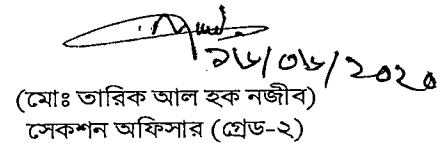 ১৬/০৬/২০২০
(মোঃ তারিক আল হক নজীব)
সেকশন অফিসার (গ্রেড-২)